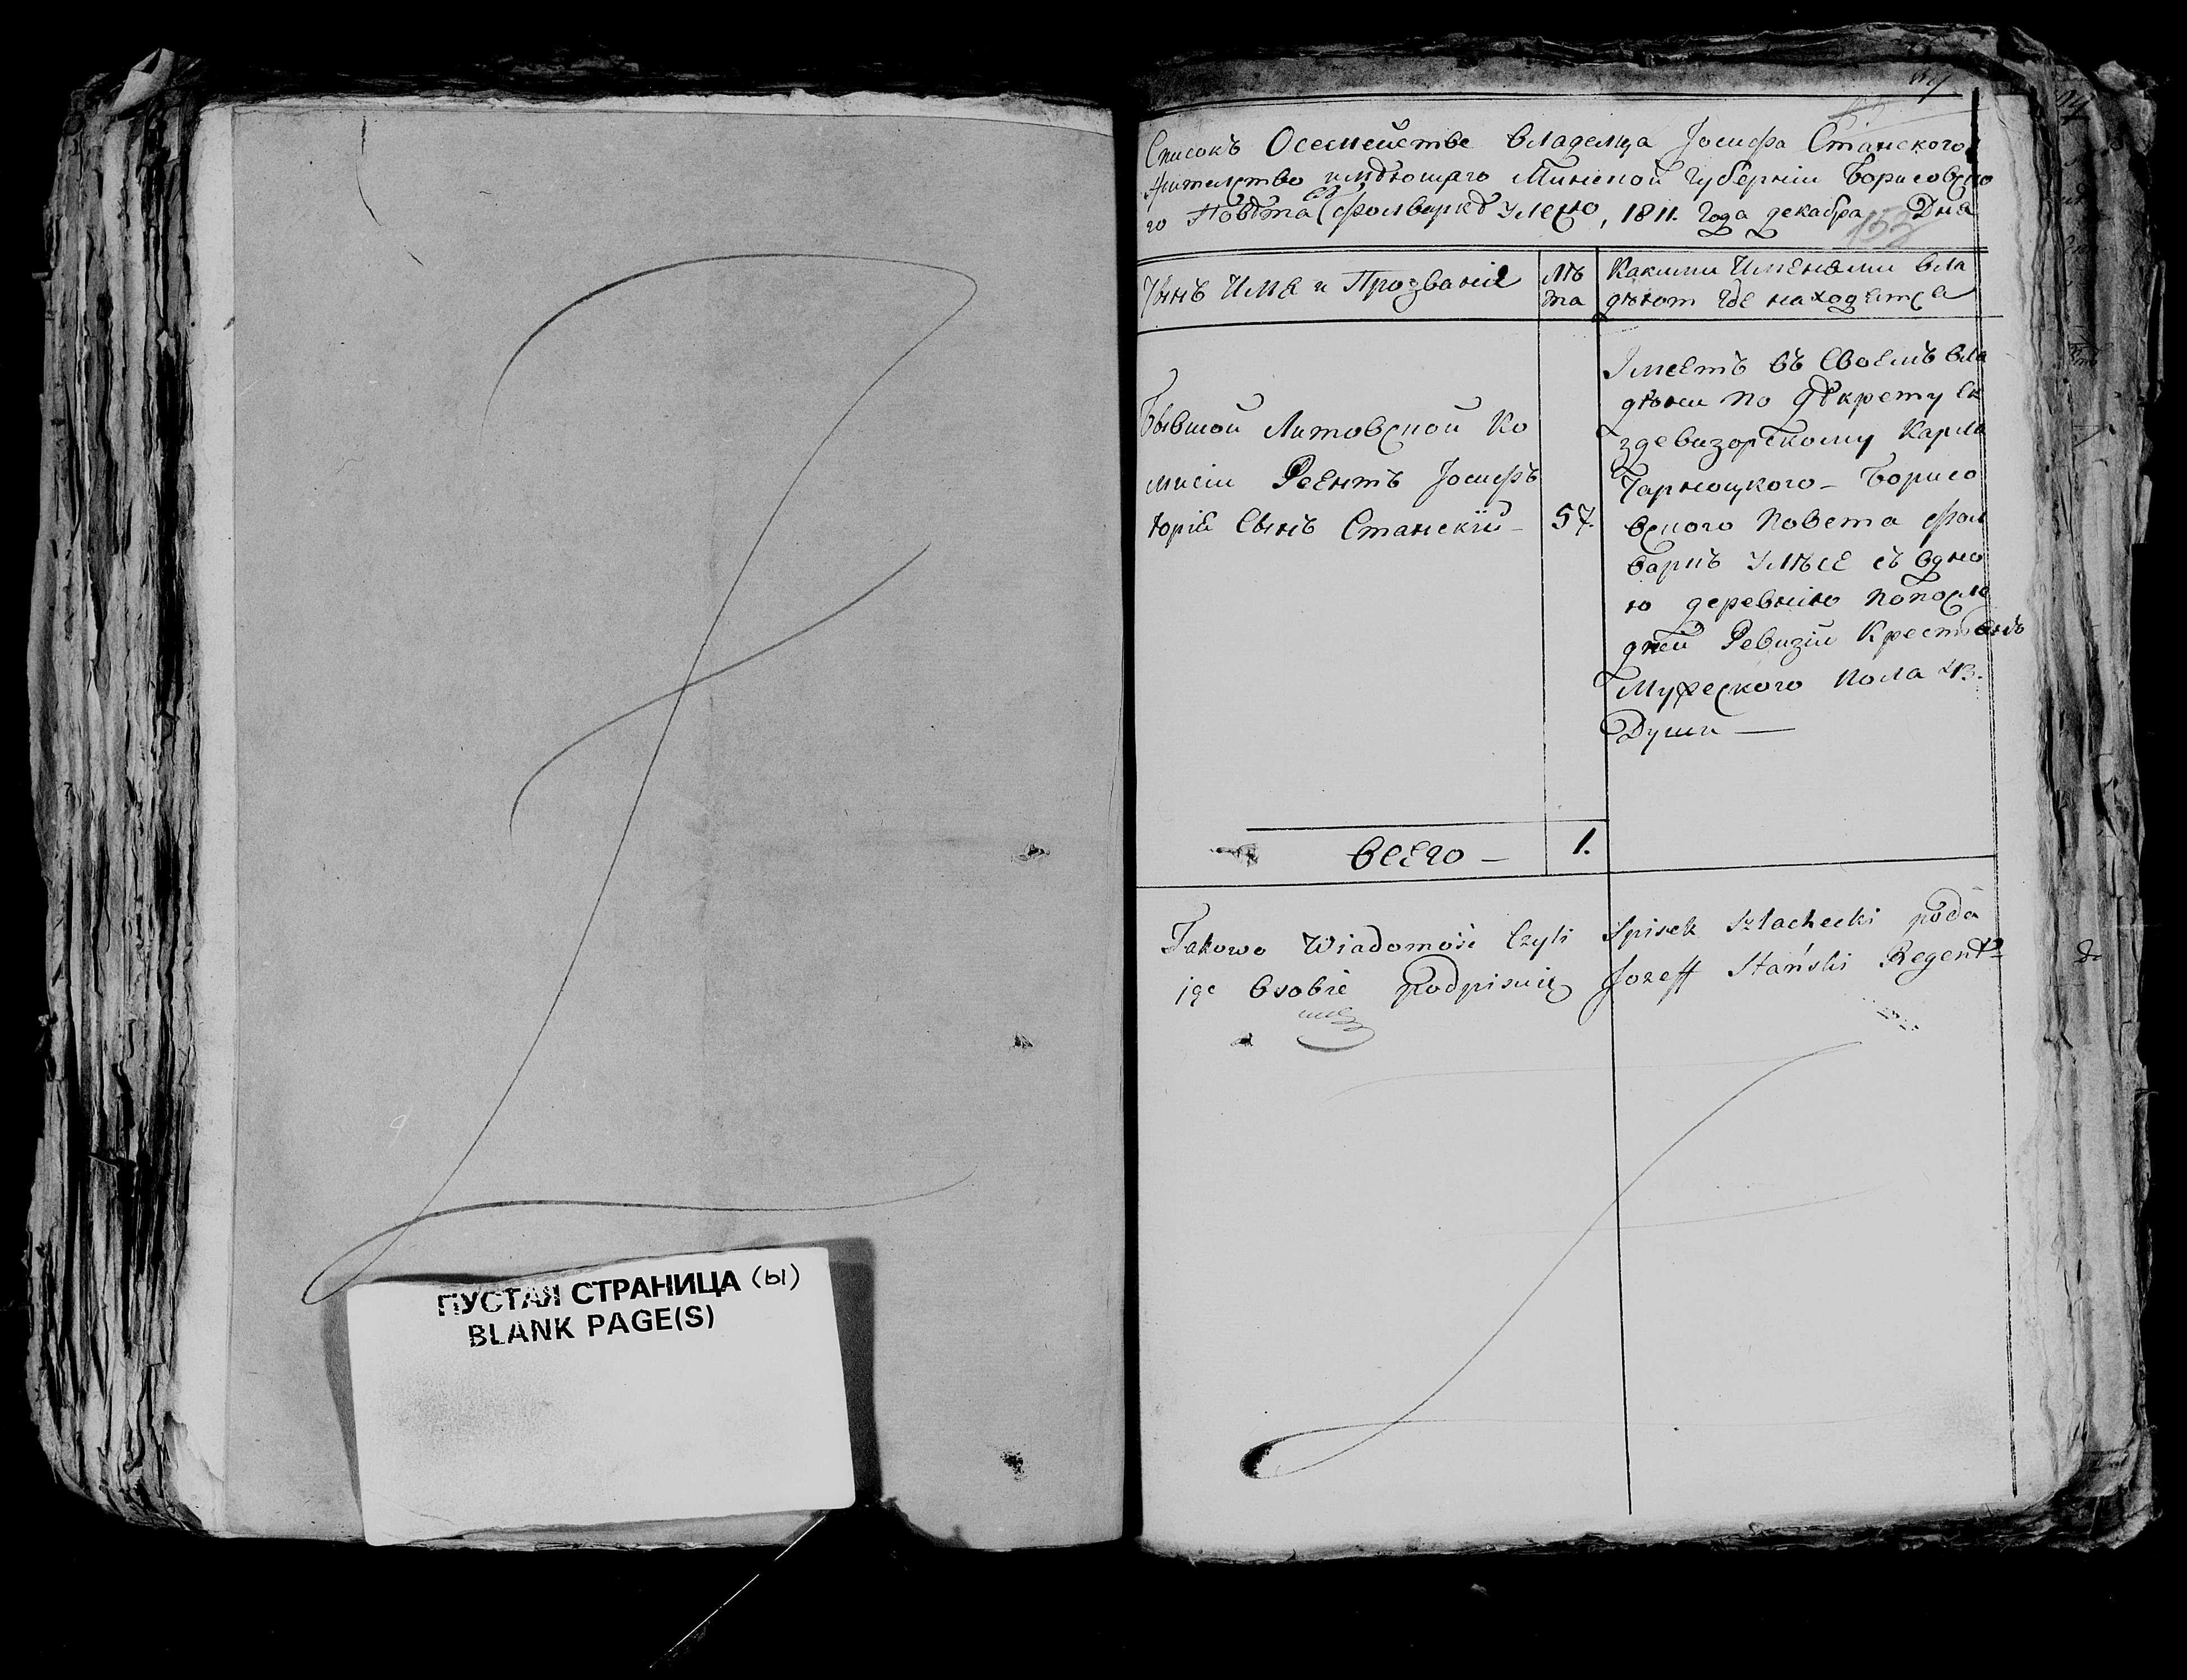 ПУСТАЯ СТРАНИЦА (ы)
BLANK PAGE(S)
Списокъ Осемействе владелца Іосифа Станского
жителство имѣющаго Минской Губерніи Борисовско
го Повѣта въ фолваркѣ, 1811. Года декабря Дня
153
Чинъ Имя и Прозваніе
Лѣ
та
Какими Имѣнями вла
дѣютъ где находятся
Бывшой Литовской Ко
мисіи Реентъ Іосифъ
Юрій Сынъ Станскій
57.
Імеетъ въ Своемъ вла
дѣнии по Дѣкрету Ек
здевизорскому Карла
Чарноцкого - Борисо
вского Повета фол
варкъ съ одно
ю деревнію попослѣ
дней Ревизіи Крестянъ
Мужеского пола 43.
Души
Всего -
1.
Takowo Wiadomość Czyli Spisek Szlachecki poda
jąc Osobie podpisuię Jozeff Stański Regent